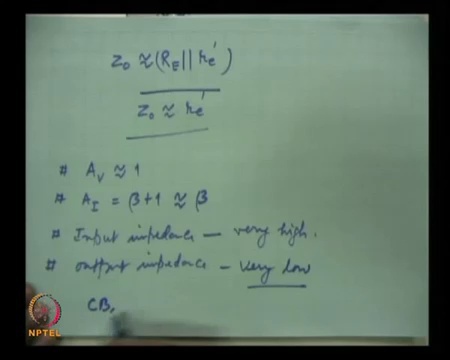 Z₀ ≈ (R_E || r_e')
Z₀ ≈ r_e'
# A_V ≈ 1
# A_I = β+1 ≈ β
# Input impedance — very high.
# output impedance - very low
CB,
NPTEL